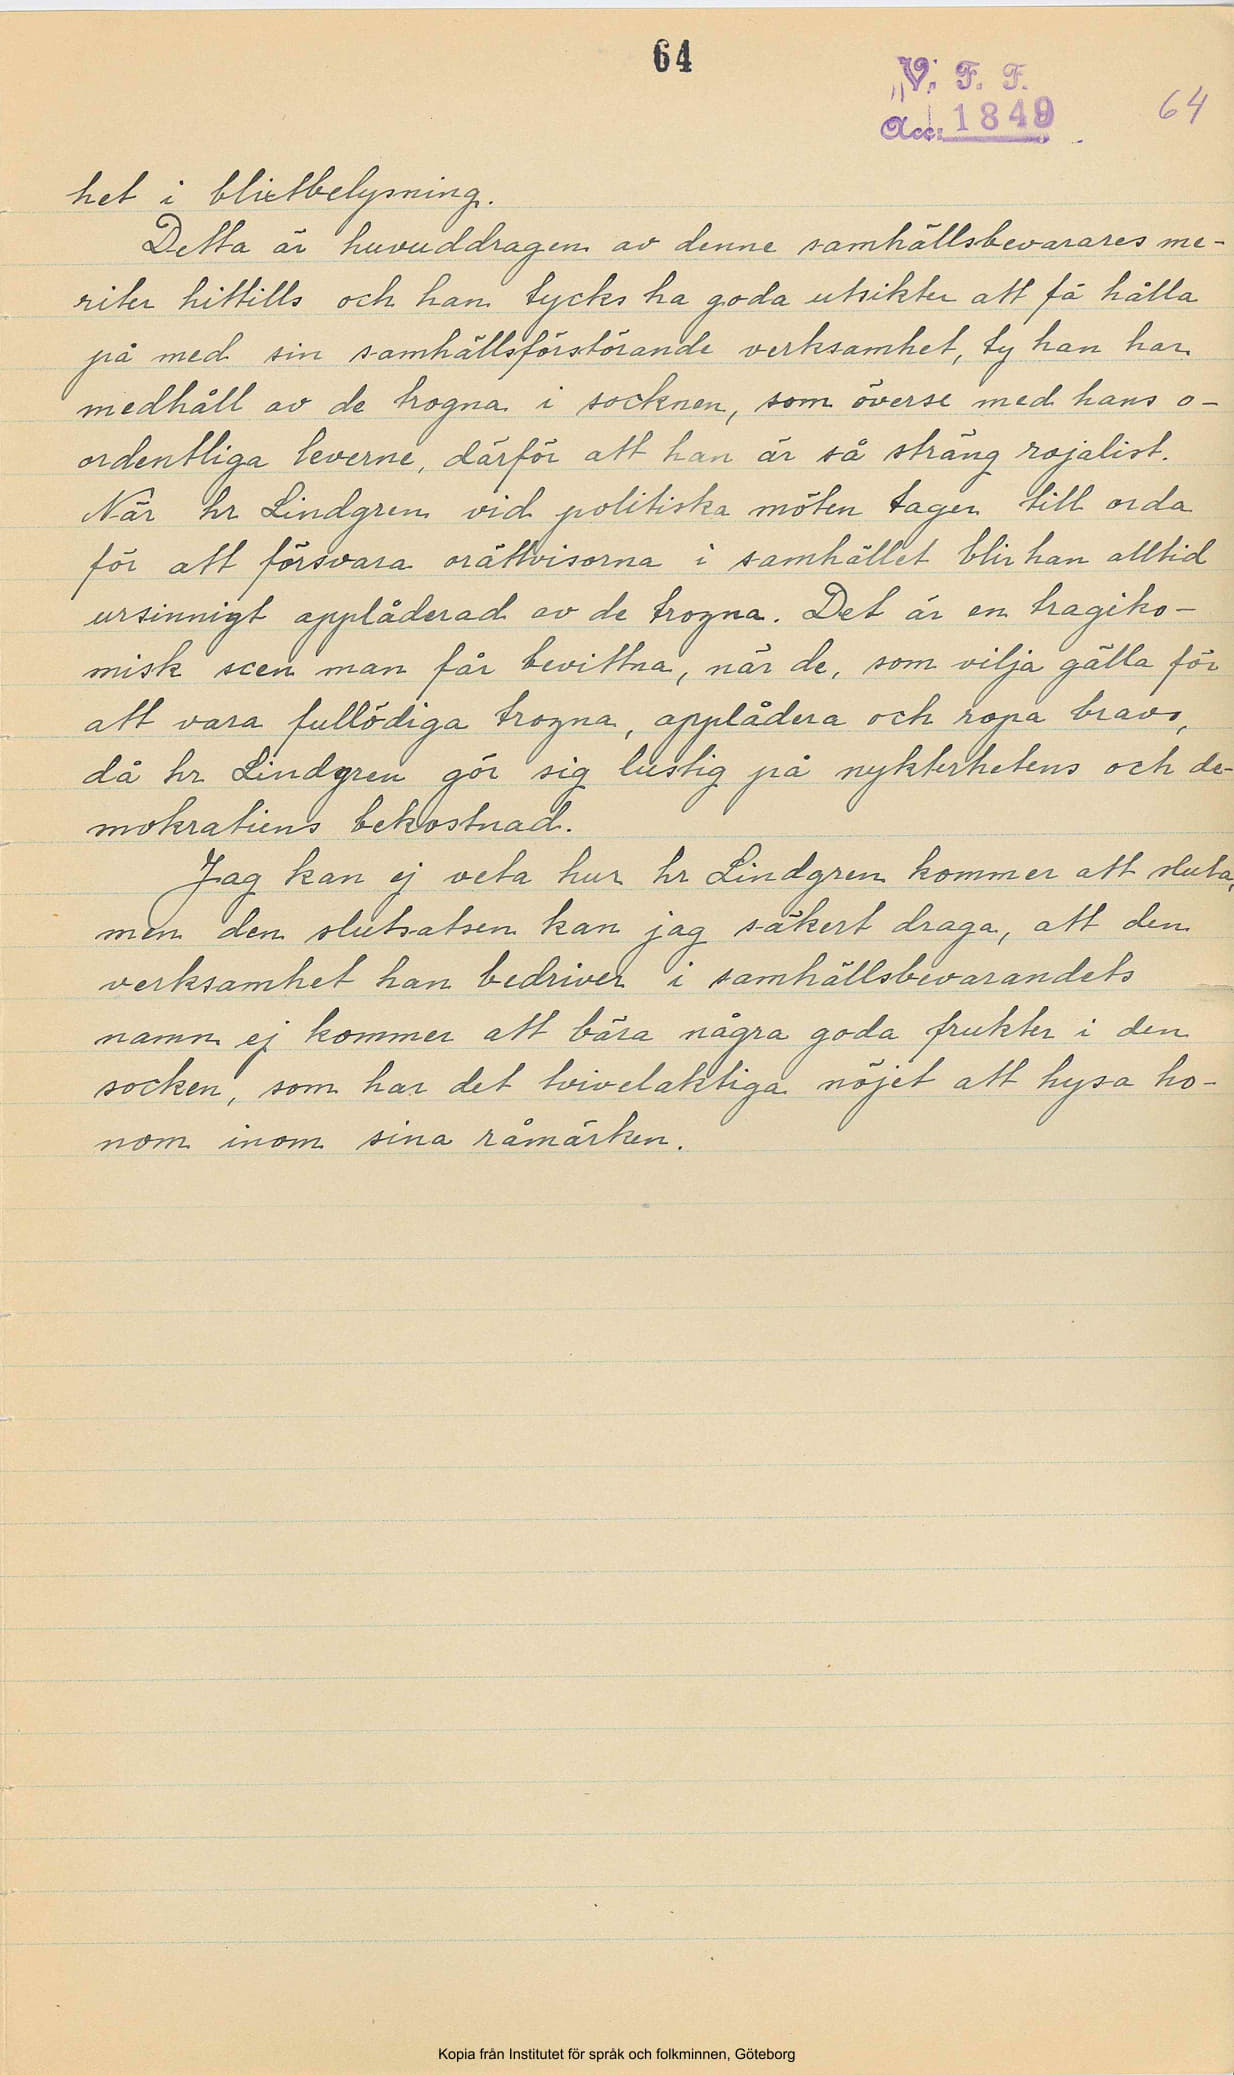 64
V. F. F.
Acc. 1849
64
het i blixtbelysning.
Detta är huvuddragen av denne samhällsbevarares me-
riter hittills och han tycks ha goda utsikter att få hålla
på med sin samhällsförstörande verksamhet, ty han har
medhåll av de trogna i socknen, som överse med hans o-
ordentliga leverne, därför att han är så sträng rojalist.
När hr Lindgren vid politiska möten tager till orda
för att försvara orättvisorna i samhället blir han alltid
ursinnigt applåderad av de trogna. Det är en tragiko-
misk scen man får bevittna, när de, som vilja gälla för
att vara fullödiga trogna, applådera och ropa bravo,
då hr Lindgren gör sig lustig på nykterhetens och de-
mokratiens bekostnad.
Jag kan ej veta hur hr Lindgren kommer att sluta,
men den slutsatsen kan jag säkert draga, att den
verksamhet han bedriver i samhällsbevarandets
namn ej kommer att bära några goda frukter i den
socken, som har det tvivelaktiga nöjet att hysa ho-
nom inom sina råmärken.
Kopia från Institutet för språk och folkminnen, Göteborg